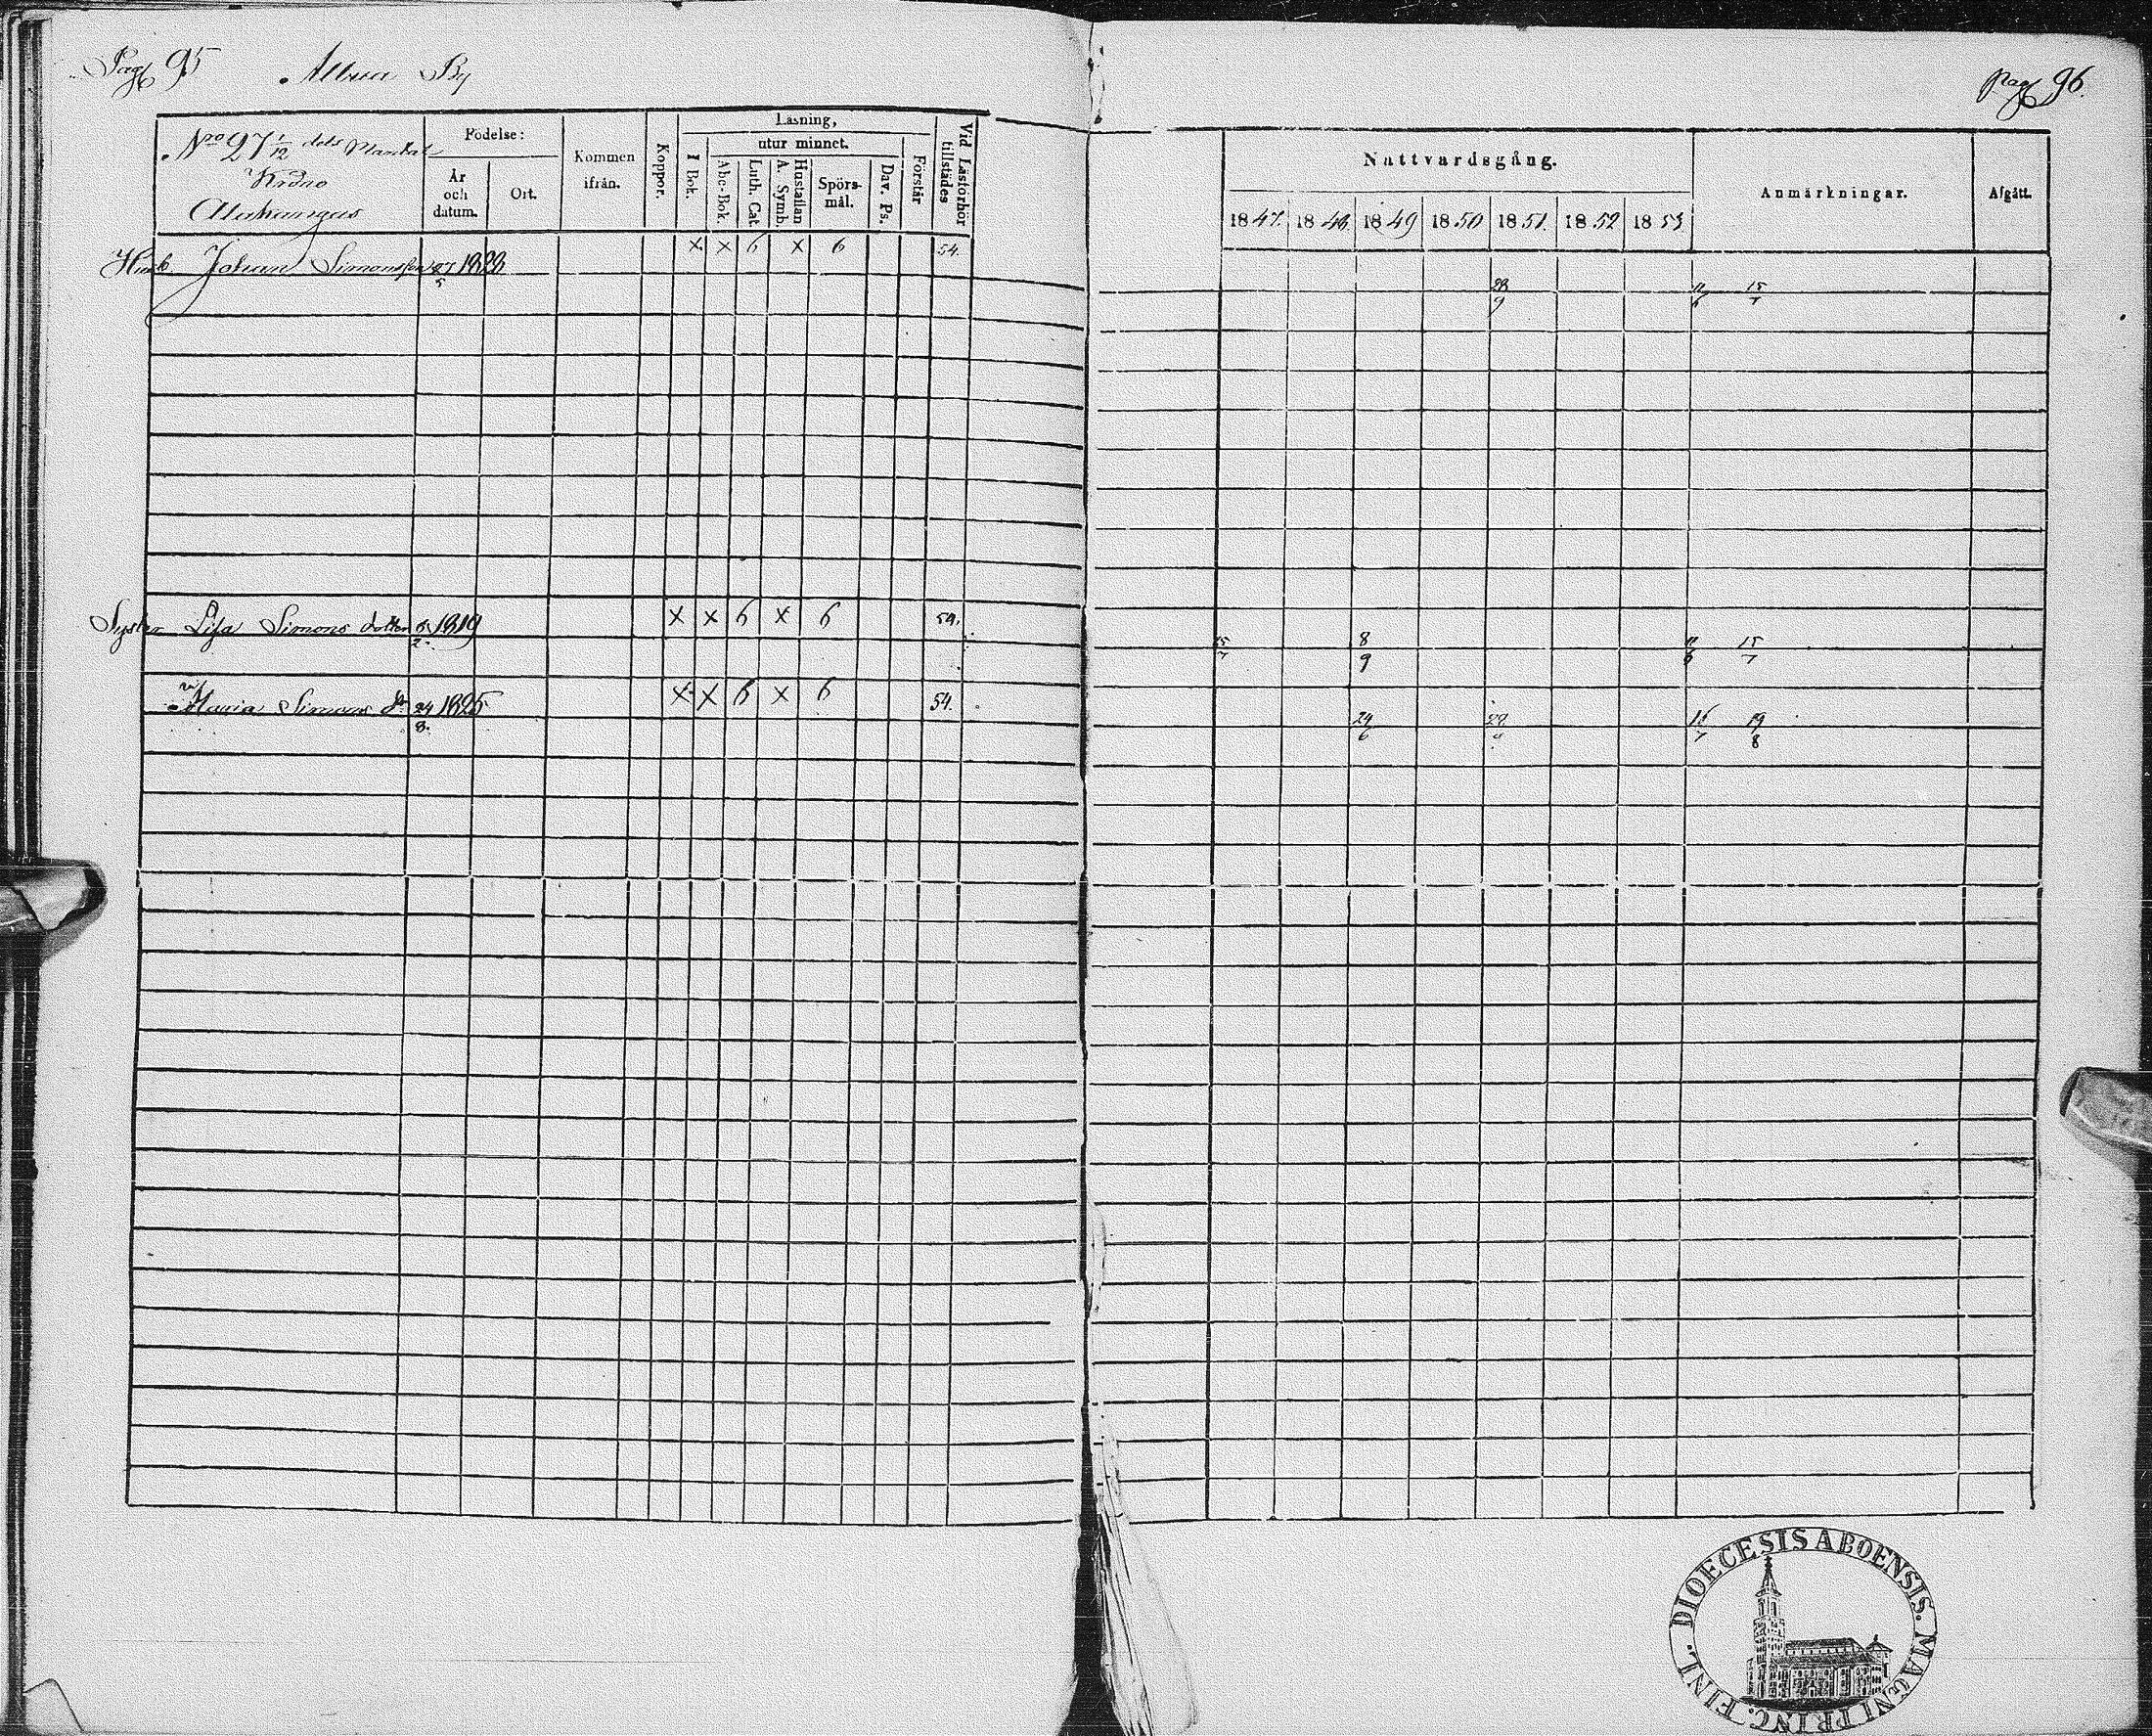 Pag 95 By
Pag 96.
Nro 27 1/12 dels Mantal
Krono
Födelse:
År och datum.
Ort.
Kommen ifrån.
Koppor.
Läsning,
I Bok.
utur minnet.
Abc-Bok.
Luth. Cat.
Hustaflan A. Symb.
Spörs-mål.
Dav. Ps.
Förstår
Vid Läsförhör tillstädes
Nattvardsgång.
1847. 1848. 1849 1850 1851. 1852 1853
Anmärkningar.
Afgått.
Johan Simonsson 27/5 1828 x x 6 x 6 54.
28/9 11/6 15/7
Syster Lisa Simons dotter 1819 x x 6 x 6 54.
15/7 8/9 11/6 15/7
Maria Simons dr 24/8. 1825 x x 6 x 6 54.
24/6 19/8
DIOECESIS ABOENSIS. MAGNI PRINC. FINL.